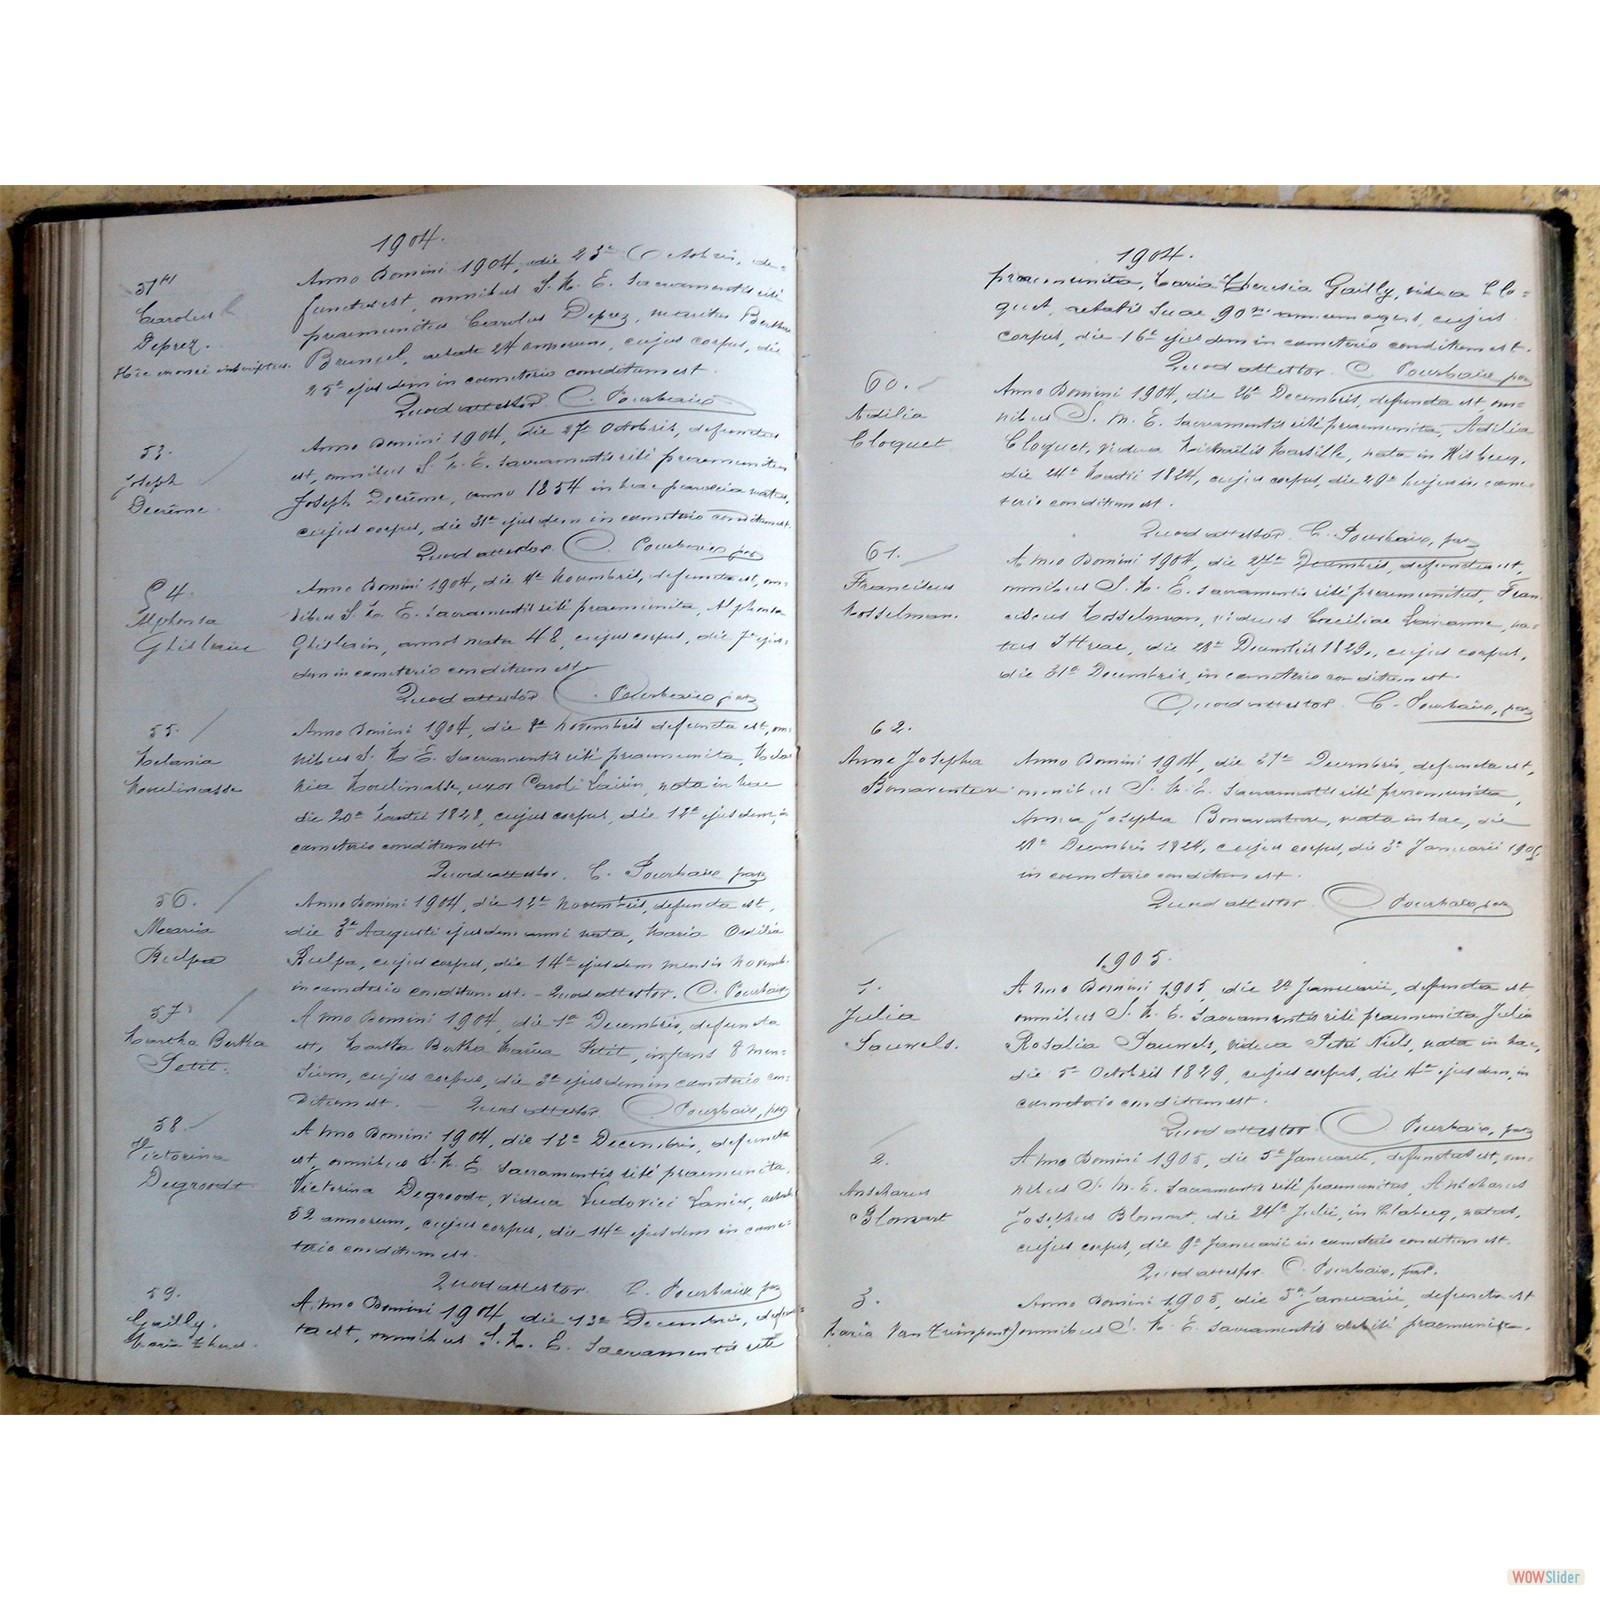 1904.
Carolus
Deprez.
Anno Domini 1904, die 23ª Octobris, de=
functus est, omnibus S. M. E. Sacramentis rite
praemunitus Carolus Deprez, maritus
Bruneel, aetate 24 annorum, cujus corpus, die
25ª ejusdem in coemeterio conditum est.
Quod attestor C. Pourbaix
53.
Joseph
Decême.
Anno Domini 1904, die 27ª Octobris, defunctus
est, omnibus S. M. E. Sacramentis rité praemunitus
Joseph Decême, anno 1854 in hac parochia natus,
cujus corpus, die 31ª ejusdem in cometerio conditum est.
Quod attestor C. Pourbaix, par
54.
Alphonsa
Ghislain
Anno Domini 1904, die 4ª Novembris, defuncta est, om-
nibus S. M. E. Sacramentis rité praemunita, Alphonsa
Ghislain, annos nata 48, cujus corpus, die 7ª ejus-
dem in cometerio conditum est
Quod attestor C. Pourbaix, par
55.
Melania
Moulinasse
Anno Domini 1904, die 8ª Novembris defuncta est, om-
nibus S. M. E. Sacramentis rité praemunita, Mela-
nia Moulinasse, uxor Caroli, nata in hac
die 20ª Martii 1828, cujus corpus, die 12ª ejusdem, in
cometerio conditum est.
Quod attestor, C. Pourbaix par
56.
Maria
Bulpa
Anno Domini 1904, die 12ª Novembris, defuncta est,
die 3ª Augusti ejusdem anni nata, Maria Odilia
Bulpa, cujus corpus, die 14ª ejusdem mensis Novemb.
in cometerio conditum est. - Quod attestor. C. Pourbaix
57.
Martha Bertha
Petit.
Anno Domini 1904, die 1ª Decembris, defuncta
est, Martha Bertha Maria Petit, infans 8 men-
sium, cujus corpus, die 3ª ejusdem in cometerio con-
ditum est. - Quod attestor C. Pourbaix, par
58.
Victorina
Degroodt
Anno Domini 1904, die 12ª Decembris, defuncta
est, omnibus S. M. E. Sacramentis rité praemunita,
Victorina Degroodt, vidua Ludovici Lanier, aetate
52 annorum, cujus corpus, die 14ª ejusdem in come-
terio conditum est.
Quod attestor C. Pourbaix par
59.
Gailly.
Maria Theres.
Anno Domini 1904 die 13ª Decembris, defunc-
ta est, omnibus S. M. E. Sacramentis rite
1904.
praemunita, Maria Theresia Gailly, vidua Clo=
quet, aetatis suae 90um annum agens, cujus
corpus, die 16ª ejusdem in cometerio conditum est.
Quod attestor C. Pourbaix par
60.
Adilia
Cloquet
Anno Domini 1904, die 26ª Decembris, defuncta est, om=
nibus S. M. E. Sacramentis rité praemunita, Adilia
Cloquet, vidua Michaëlis Marsille, nata in Wisbecq,
die 24ª Martii 1824, cujus corpus, die 29ª hujus in come-
terio conditum est.
Quod attestor C. Pourbaix, par
61.
Franciscus
Mosselman.
Anno Domini 1904, die 27ª Decembris, defunctus est,
omnibus S. M. E. Sacramentis rité praemunitus, Fran-
ciscus Mosselman, viduus Caeciliae, na-
tus Ittrae, die 28ª Decembris 1829, cujus corpus,
die 31ª Decembris, in cometerio conditum est.
Quod attestor C. Pourbaix, par
62.
Anna Josepha
Bonaventure
Anno Domini 1904, die 31ª Decembris, defuncta est,
omnibus S. M. E. Sacramentis rité praemunita,
Anna Josepha Bonaventure, nata in hac, die
28ª Decembris 1824, cujus corpus, die 3ª Januarii 1905
in cometerio conditum est.
Quod attestor C. Pourbaix par
1905.
1.
Julia
Pauwels.
Anno Domini 1905, die 2ª Januarii, defuncta est
omnibus S. M. E. Sacramentis rité praemunita Julia
Rosalia Pauwels, vidua Petri Niels, nata in hac,
die 5ª Octobris 1829, cujus corpus, die 4ª ejusdem, in
cometerio conditum est.
Quod attestor C. Pourbaix, par
2.
Anscharus
Blomart
Anno Domini 1905, die 5ª Januarii, defunctus est, om-
nibus S. M. E. Sacramentis rité praemunitus, Anscharus
Josephus Blomart, die 24ª Julii, in Clabecq, natus,
cujus corpus, die 9ª Januarii in conditum est.
Quod attestor C. Pourbaix, par.
3.
Maria Van Trimpont
Anno Domini 1905, die 5ª Januarii, defuncta est
omnibus S. M. E. Sacramentis rité praemunita.
WOWSlider